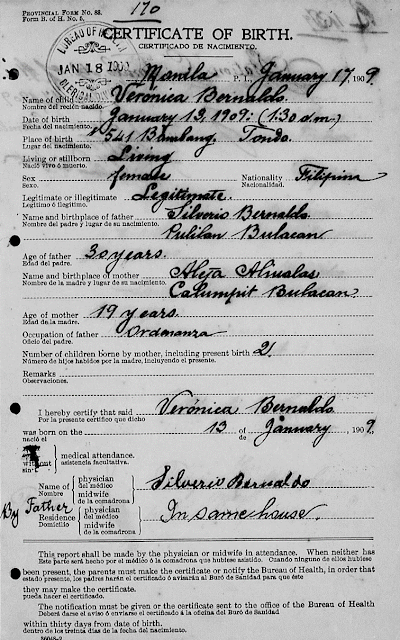 PROVINCIAL FORM No. 88.
Form B. of H. No. 5.
170
CERTIFICATE OF BIRTH.
CERTIFICADO DE NACIMIENTO.
BUREAU OF HEALTH
JAN 18 1909
Manila P. I., January 17, 1909.
Name of child Verónica Bernaldo.
Nombre del recién nacido.
Date of birth January 13, 1909: (1:30 a.m.)
Fecha del nacimiento.
Place of birth 541 Bambang. Tondo.
Lugar del nacimiento.
Living or stillborn Living
Nació vivo ó muerto.
Sex female Nationality Filipina
Sexo. Nacionalidad.
Legitimate or illegitimate Legitimate.
Legítimo ó ilegítimo.
Name and birthplace of father Silverio Bernaldo.
Nombre del padre y lugar de su nacimiento.
Pulilan Bulacan
Age of father 30 years.
Edad del padre.
Name and birthplace of mother Aleja
Nombre de la madre y lugar de su nacimiento.
Calumpit Bulacan.
Age of mother 19 years.
Edad de la madre.
Occupation of father Ordenanza
Oficio del padre.
Number of children borne by mother, including present birth 2.
Número de hijos habidos por la madre, incluyendo el presente.
Remarks
Observaciones.
I hereby certify that said Verónica Bernaldo
Por la presente certifico que dicho
was born on the 13 of January, 1909.
nació el de
medical attendance.
without asistencia facultativa.
sin
Name of physician Silverio Bernaldo
Nombre del médico
midwife
de la comadrona
By Father
Residence physician In same house.
Domicilio del médico
midwife
de la comadrona
This report shall be made by the physician or midwife in attendance. When neither has
Este parte será hecho por el médico ó la comadrona que hubiese asistido. Cuando ninguno de ellos hubiese
been present, the parents must make the certificate or notify the Bureau of Health, in order that
estado presente, los padres harán el certificado ó avisarán al Buró de Sanidad para que éste
they may make the certificate.
pueda hacer el certificado.
The notification must be given or the certificate sent to the office of the Bureau of Health
Deberá darse el aviso ó enviarse el certificado á la oficina del Buró de Sanidad
within thirty days from date of birth.
dentro de los treinta días de la fecha del nacimiento.